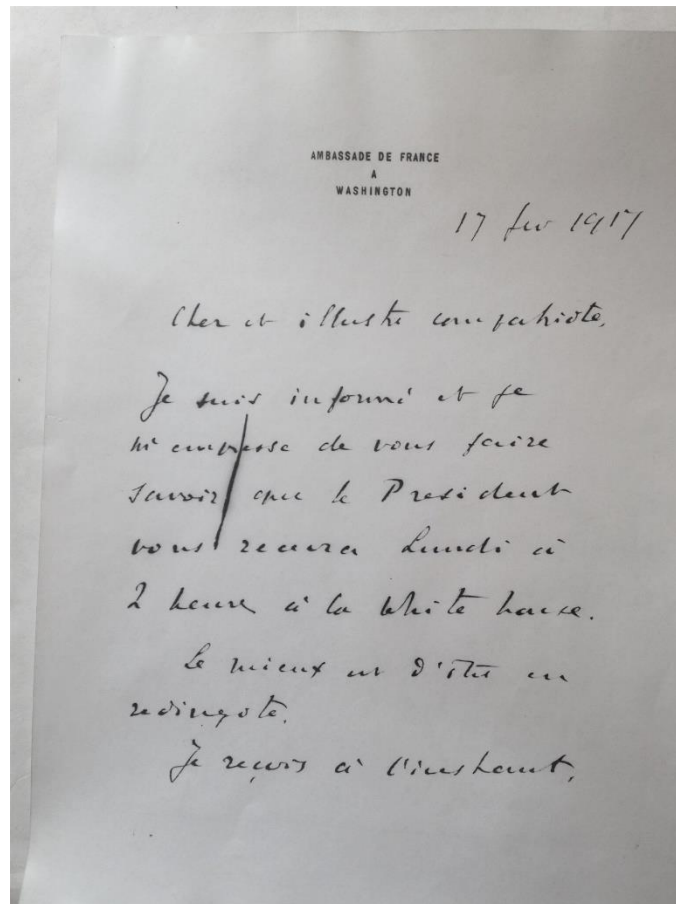 AMBASSADE DE FRANCE
A
WASHINGTON
17 fev 1917
Cher et illustre compatriote,
Je suis informé et je
m'empresse de vous faire
savoir que le President
vous recevra Lundi à
2 heures à la White house.
Le mieux est d'être en
redingote.
Je reçois à l'instant,